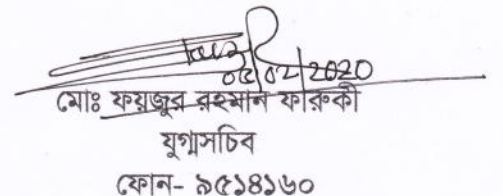 ০৫/০২/2020
মোঃ ফয়জুর রহমান ফারুকী
যুগ্মসচিব
ফোন- ৯৫১৪১৬০